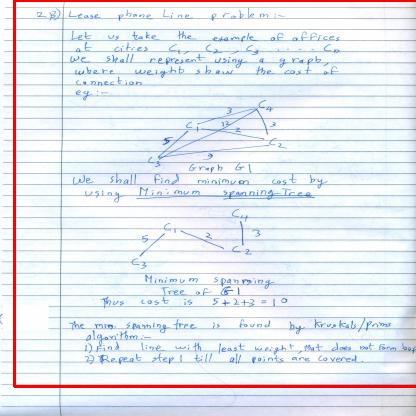 2 B) Lease phone Line problem:-
Let us take the example of offices
at cities C1, C2, C3 ..... Cn
we shall represent using a graph,
where weights show the cost of
connection
eg:-
C4
3
C1
12
2
3
5
C2
C3
9
Graph G1
We shall find minimum cost by
using Minimum spanning Tree
C4
C1
5
2
3
C2
C3
Minimum spanning
Tree of G1
Thus cost is 5+2+3=10
The min. spanning tree is found by Kruskals/prims
algorithm:-
1) Find line with least weight, that does not form loop
2) Repeat step 1 till all points are covered.